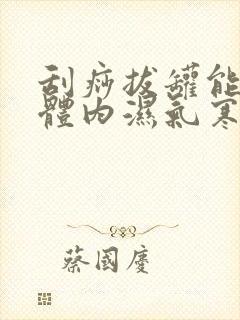 刮痧拔罐能
體內濕氣寒
蔡國慶